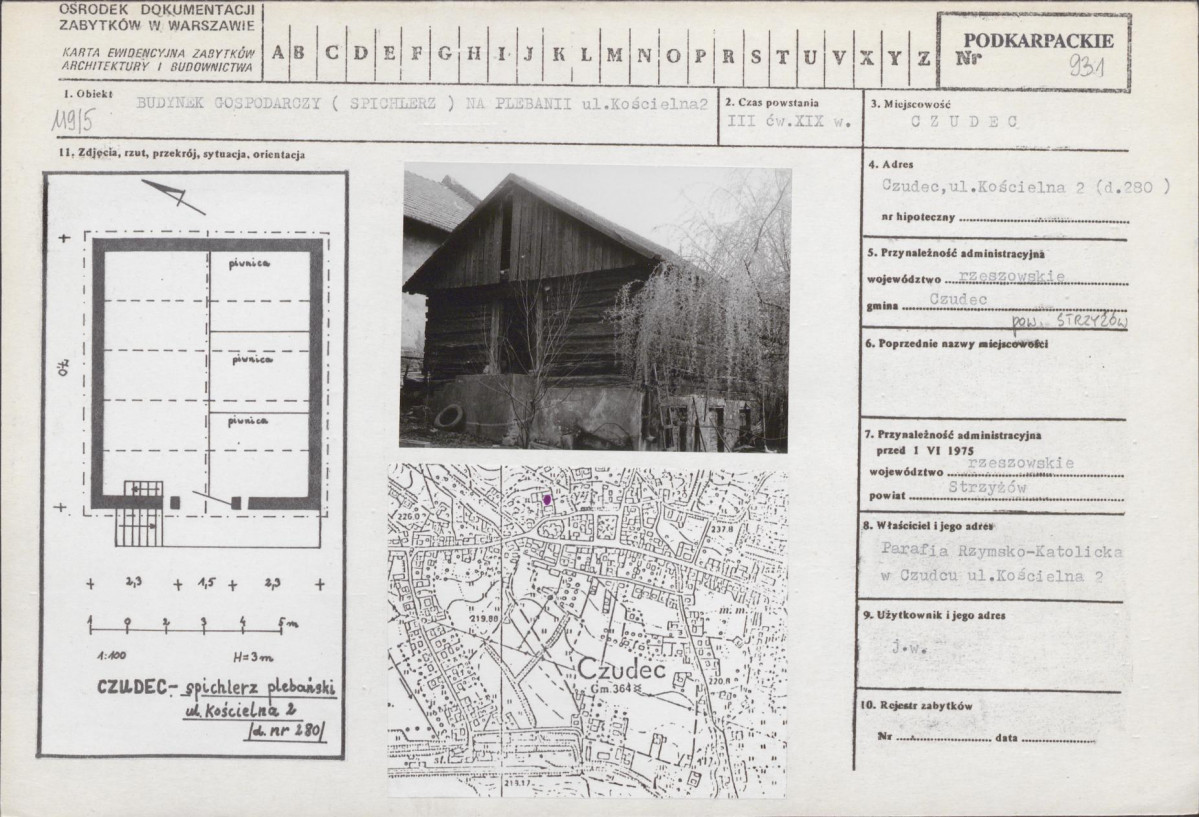 OŚRODEK DOKUMENTACJI
ZABYTKÓW W WARSZAWIE
KARTA EWIDENCYJNA ZABYTKÓW
ARCHITEKTURY I BUDOWNICTWA
A B C D E F G H I J K L M N O P R S T U V X Y Z
PODKARPACKIE
Nr 931
1. Obiekt
BUDYNEK GOSPODARCZY ( SPICHLERZ ) NA PLEBANII ul.Kościelna2
119/5
2. Czas powstania
III ćw.XIX w.
3. Miejscowość
C Z U D E C
11. Zdjęcia, rzut, przekrój, sytuacja, orientacja
piwnica
piwnica
piwnica
7,0
2,3 1,5 2,3
1 0 2 3 4 5 m
1:100 H=3m
CZUDEC - spichlerz plebański
ul. Kościelna 2
/d. nr 280/
226.0
237.8
219.88
m. m.
Czudec
Gm. 364
220.8
st.
219.17
4. Adres
Czudec,ul.Kościelna 2 (d.280 )
nr hipoteczny
5. Przynależność administracyjna
województwo rzeszowskie
gmina Czudec
pow. STRZYŻÓW
6. Poprzednie nazwy miejscowości
7. Przynależność administracyjna
przed 1 VI 1975
województwo rzeszowskie
powiat Strzyżów
8. Właściciel i jego adres
Parafia Rzymsko-Katolicka
w Czudcu ul.Kościelna 2
9. Użytkownik i jego adres
j.w.
10. Rejestr zabytków
Nr data